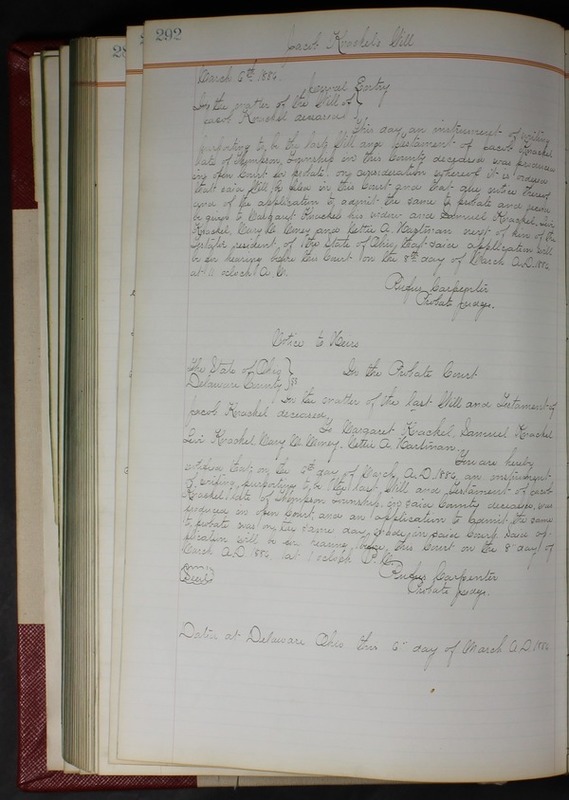 292
Jacob Krackel's Will
March 6th 1886
Journal Entry
In the matter of the Will of
Jacob Krackel deceased
This day an instrument of writing
purporting to be the last Will and Testament of Jacob Krackel
late of Thompson Township in this County deceased was produced
in open Court for probate, on consideration whereof it is ordered
that said Will be filed in this Court and that due notice thereof
and of the application to admit the same to probate and record
be given to Margaret Krackel his widow and Samuel Krackel, Levi
Krackel, Mary M. and Nettie A. Hartman next of kin of the
Testator resident of the State of Ohio, that said application will
be for hearing before this Court on the 8th day of March A.D. 1886
at o'clock M.
Rufus Carpenter
Probate Judge.
Notice to Heirs
The State of Ohio
Delaware County } ss
In the Probate Court
In the matter of the last Will and Testament of
Jacob Krackel deceased,
To Margaret Krackel, Samuel Krackel
Levi Krackel Mary M. Nettie A. Hartman.
You are hereby
notified that on the 6th day of March A.D. 1886 an instrument
of writing purporting to be the last Will and Testament of Jacob
Krackel late of Thompson Township in said County deceased, was
produced in open Court and an application to admit the same
to probate was on the same day made in said Court. Said ap-
plication will be for hearing before this Court on the 8th day of
March A.D. 1886 at 1 o'clock P.M.
(Seal)
Rufus Carpenter
Probate Judge.
Dated at Delaware Ohio this 6th day of March A.D. 1886